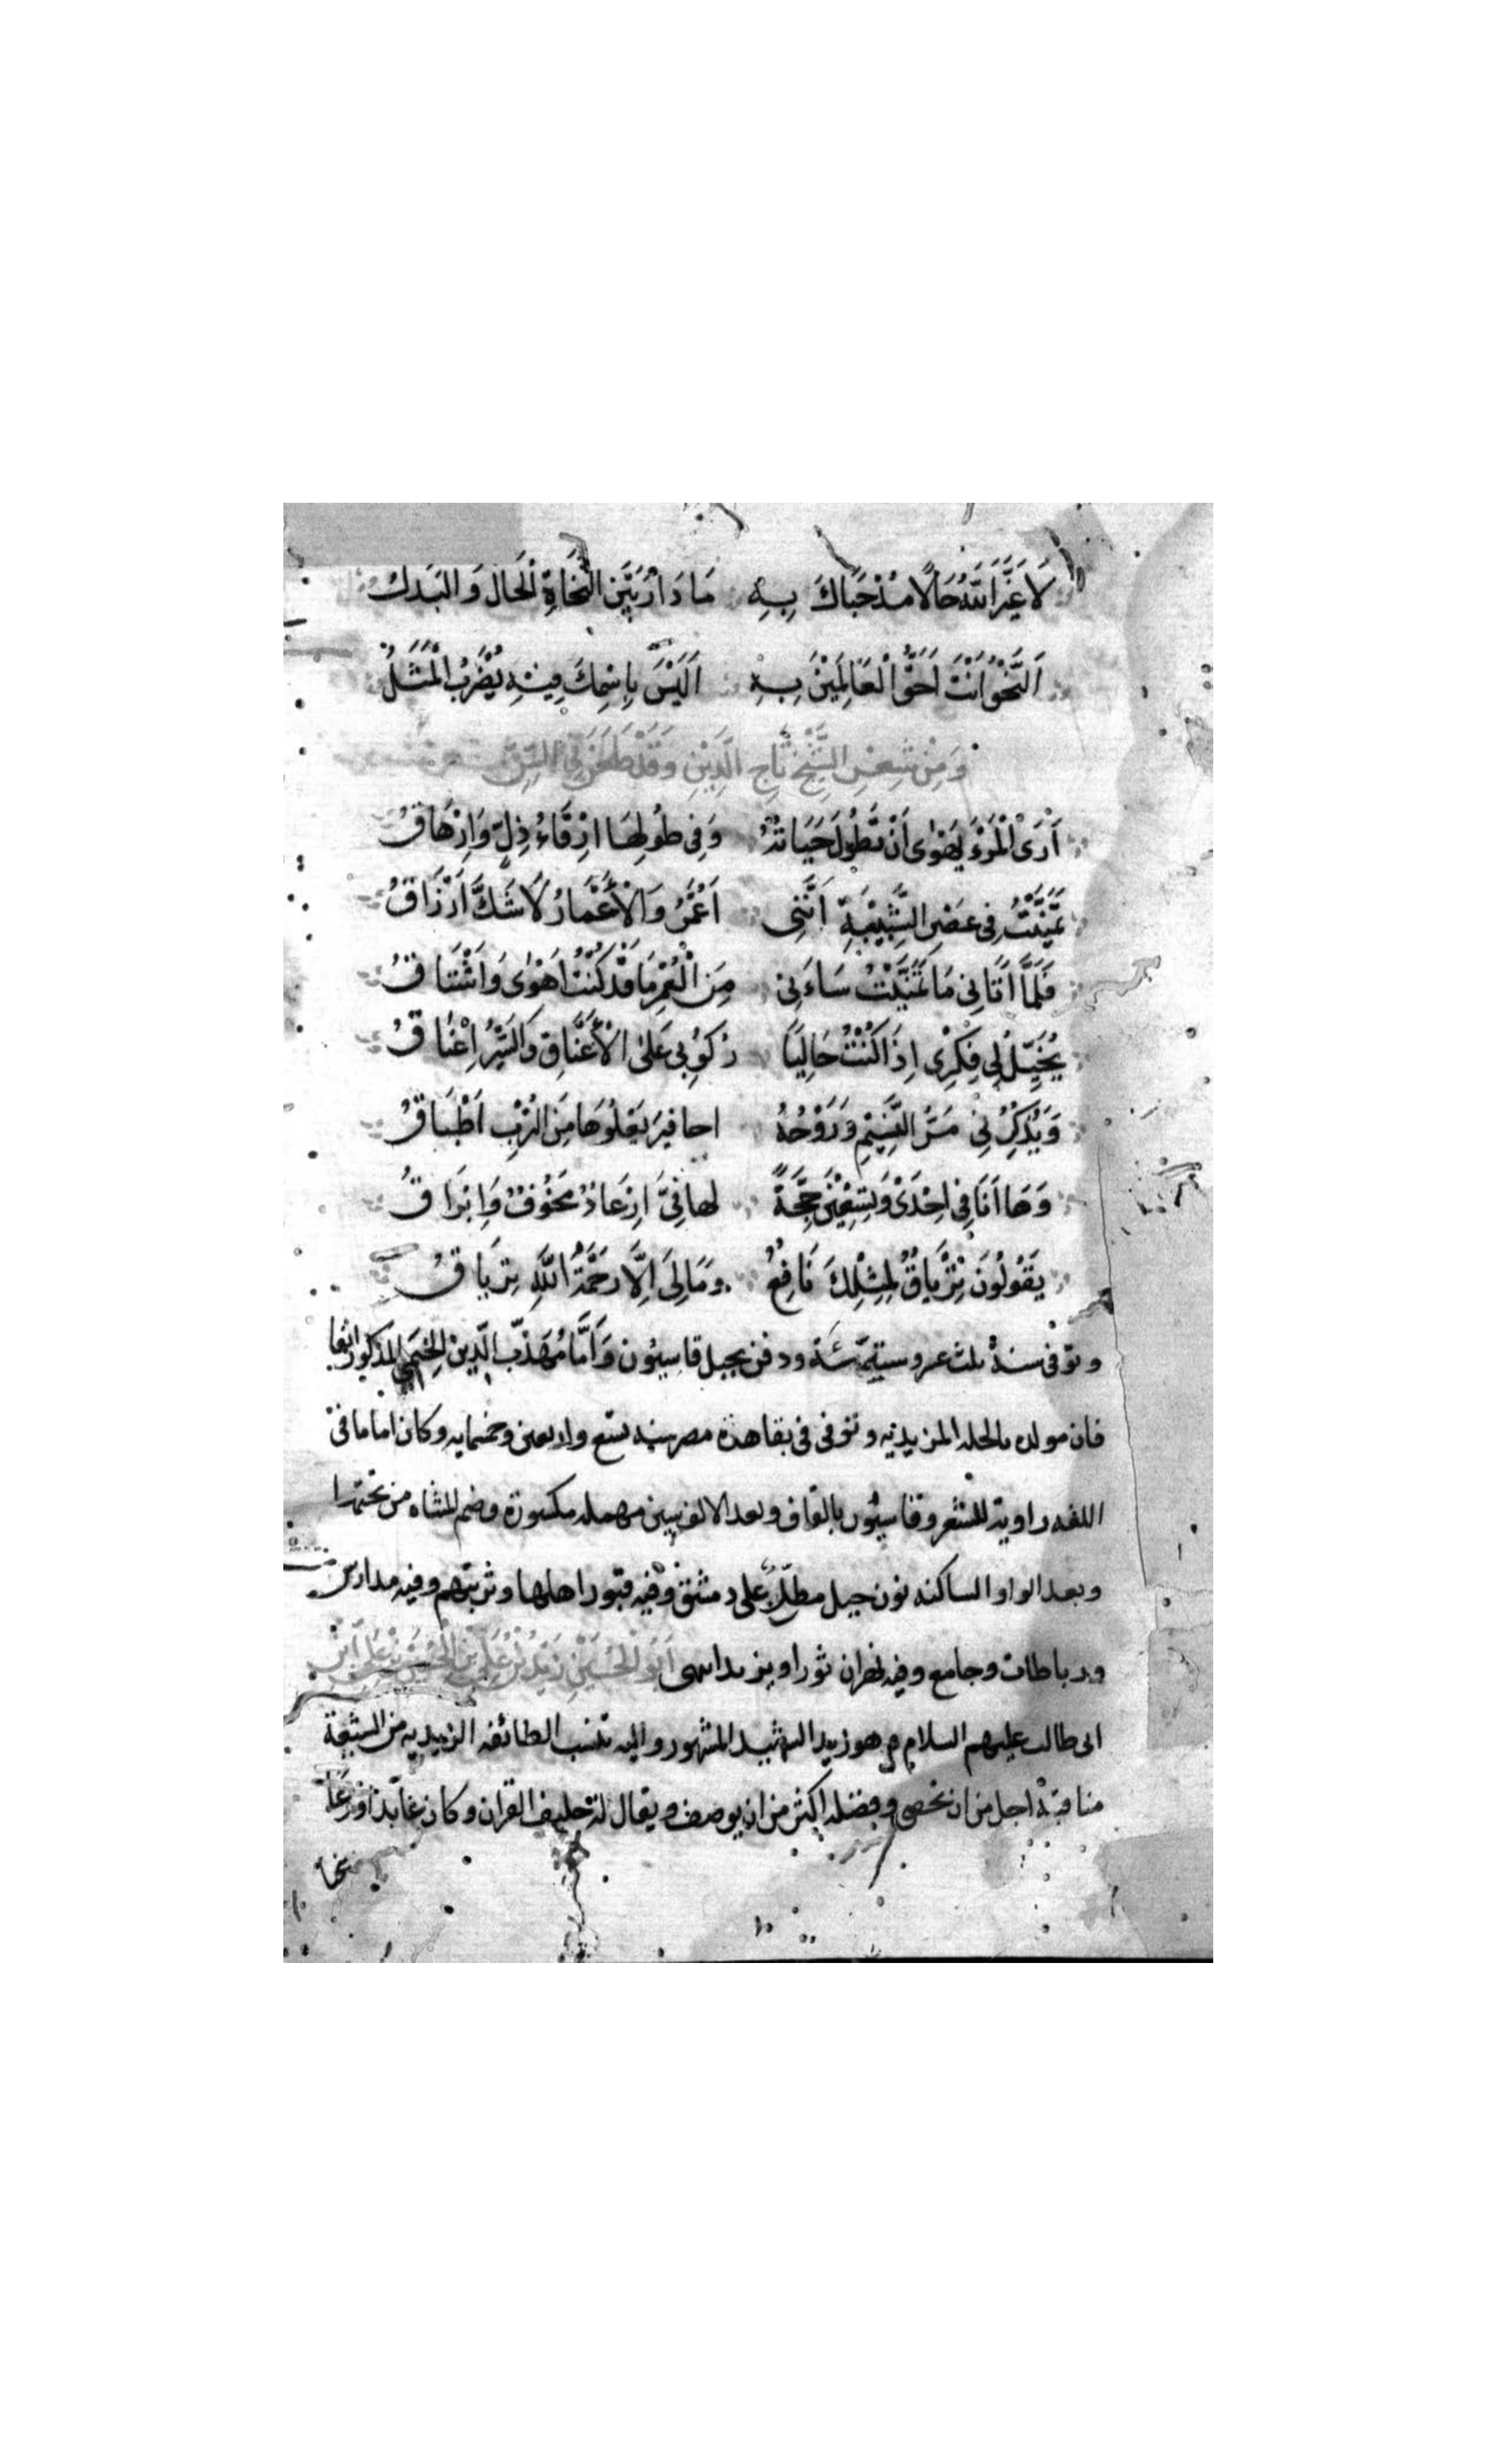 لَا غَيَّرَ اللّٰهُ حَالًا مُذْ حَبَاكَ بِهِ مَا دَارَ بَيْنَ النُّحَاةِ الْحَالُ وَالْبَدَلُ
اَلنَّحْوُ اَنْتَ اَحَقُّ الْعَالَمِيْنَ بِهِ اَلَيْسَ بِاسْمِكَ فِيْهِ يُضْرَبُ الْمَثَلُ
وَمِنْ شِعْرِ الشَّيْخِ تَاجِ الدِّيْنِ وَقَدْ طَعَنَ فِي السِّنِّ
اَرَى الْمَرْءَ يَهْوٰى اَنْ تَطُولَ حَيَاتُهُ وَفِى طُولِهَا اِرْقَاءُ ذِلٍّ وَاِزْهَاقُ
تَمَنَّيْتُ فِى عَصْرِ الشَّبِيْبَةِ اَنَّنِى اُعَمَّرُ وَالْأَعْمَارُ لَا شَكَّ اَرْزَاقُ
فَلَمَّا اَتَانِى مَا تَمَنَّيْتُ سَاءَنِى مِنَ الْعُمْرِ مَا قَدْ كُنْتُ اَهْوٰى وَاَشْتَاقُ
يُخَيِّلُ لِى فِكْرِى اِذَا كُنْتُ خَالِيًا رُكُوْبِى عَلَى الْأَعْنَاقِ وَالسَّيْرُ اِعْنَاقُ
وَيُذْكِرُنِى مَرُّ النَّسِيْمِ وَرَوْحُهُ احافير يَعْلُوْهَا مِنَ التُّرْبِ اَطْبَاقُ
وَهَا اَنَا فِى اِحْدَى وَتِسْعِيْنَ حِجَّةً لها فِىَّ اِرْعَادٌ مَخُوْفٌ وَاِبْرَاقُ
يَقُوْلُوْنَ تِرْيَاقٌ لِمِثْلِكَ نَافِعٌ وَمَا لِىَ اِلَّا رَحْمَةُ اللّٰهِ تِرْيَاقُ
وتوفى سنة ثلث عشر وستمئة ودفن بجبل قاسيون وَاَمَّا مُهَذَّب الدّين الخيمى المذكور
فان مولده بالحلة المزيدية وتوفى فى بقاهدة مصر سنه تسع واربعين وخمسمايه وكان اماما فى
اللغه راوية للشعر وقاسيون بالقاف وبعد الالف سين مهمله مكسورة وضم المثناه من تحتها
وبعد الواو الساكنه نون جبل مطلّ على دمشق وفيه قبور اهلها وتربتهم وفيه مدارس
ورباطات وجامع وفيه نهران ثورا ويزيد انتهى اَبُو الْحُسَيْنِ زَيْدُ بْنُ عَلِيِّ بْنِ الْحُسَيْنِ بْنِ عَلِيِّ ابْن
ابى طالب عليهم السلام هو زيد الشهيد المشهور واليه تنسب الطائفه الزيديه من الشيعة
مناقبة اجل من ان تحصى وفضله اكثر من ان يوصف ويقال له حليف القران وكان عابدًا ورعًا